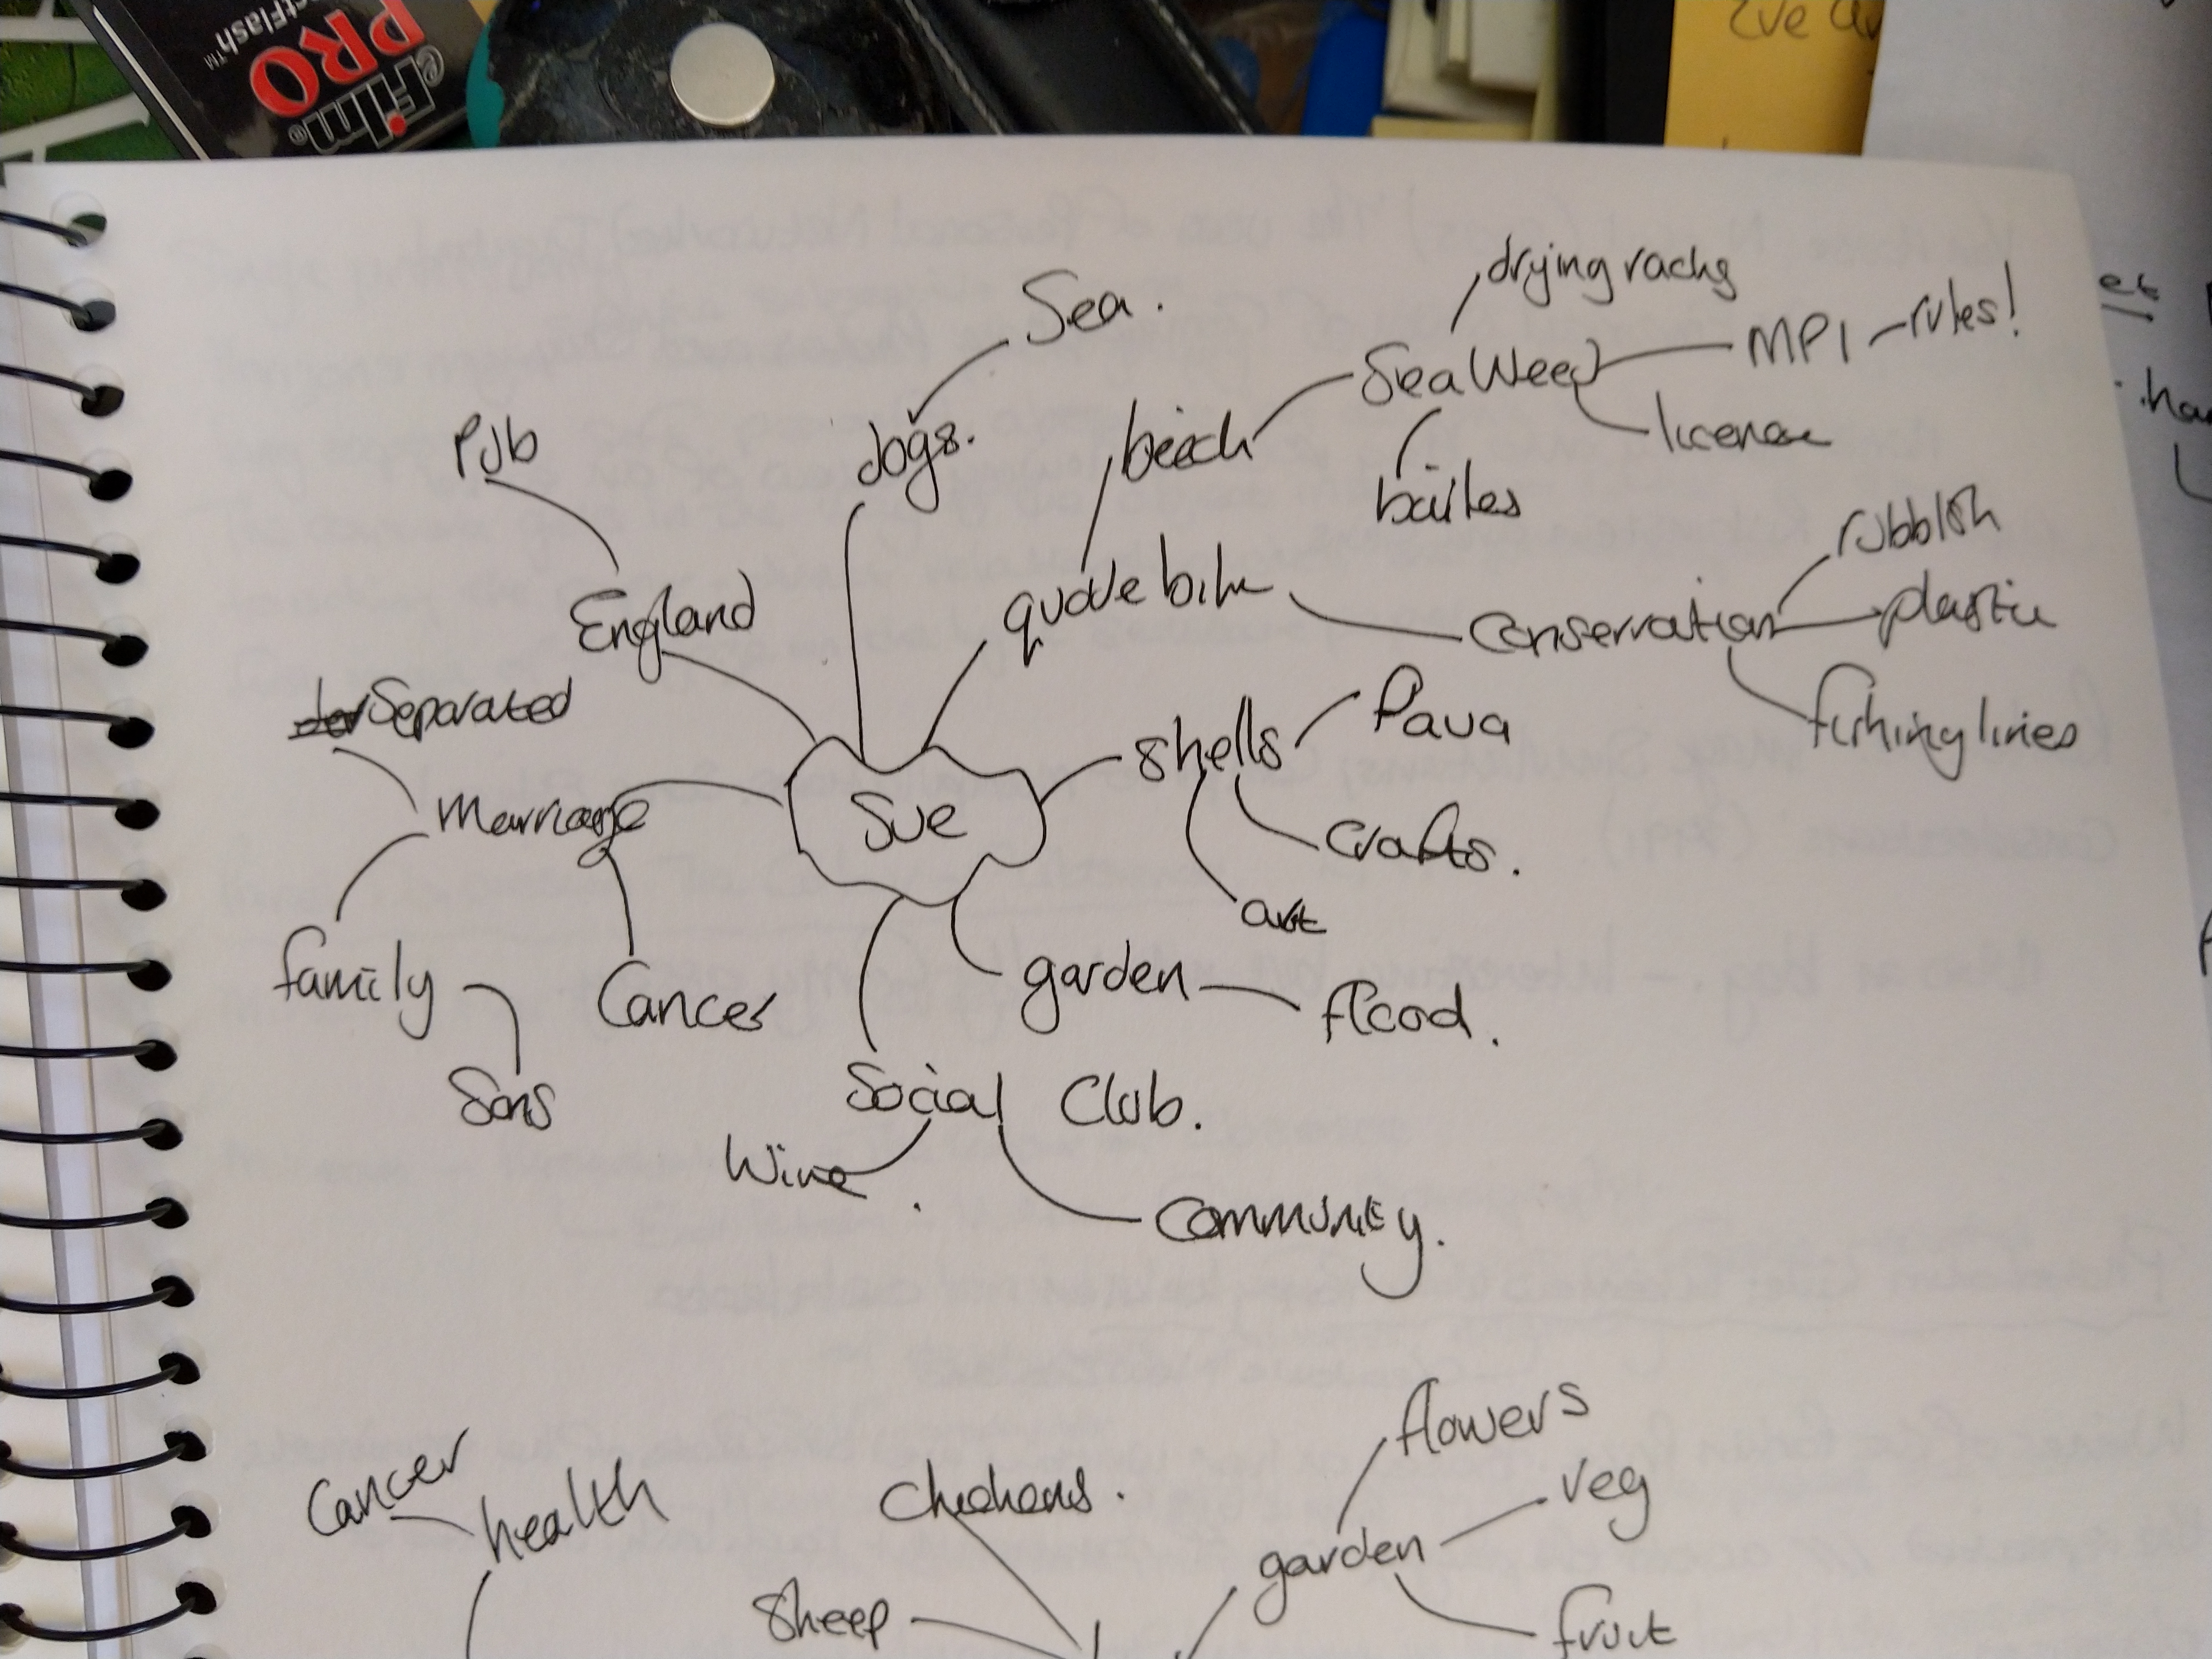 ctFlash™
PRO
eFilm®
Sea.
drying racks
MPI - rules!
SeaWeed
license
bailes
dogs.
beach
Pub
rubbish
plastic
fishing lines
Conservation
quade bike
England
Separated
Pava
shells
Crafts.
art
Sue
Marriage
family
Cancer
Sons
garden
flood.
Social Club.
Wine.
Community.
flowers
veg
garden
fruit
Cancer
health
Chickens.
Sheep